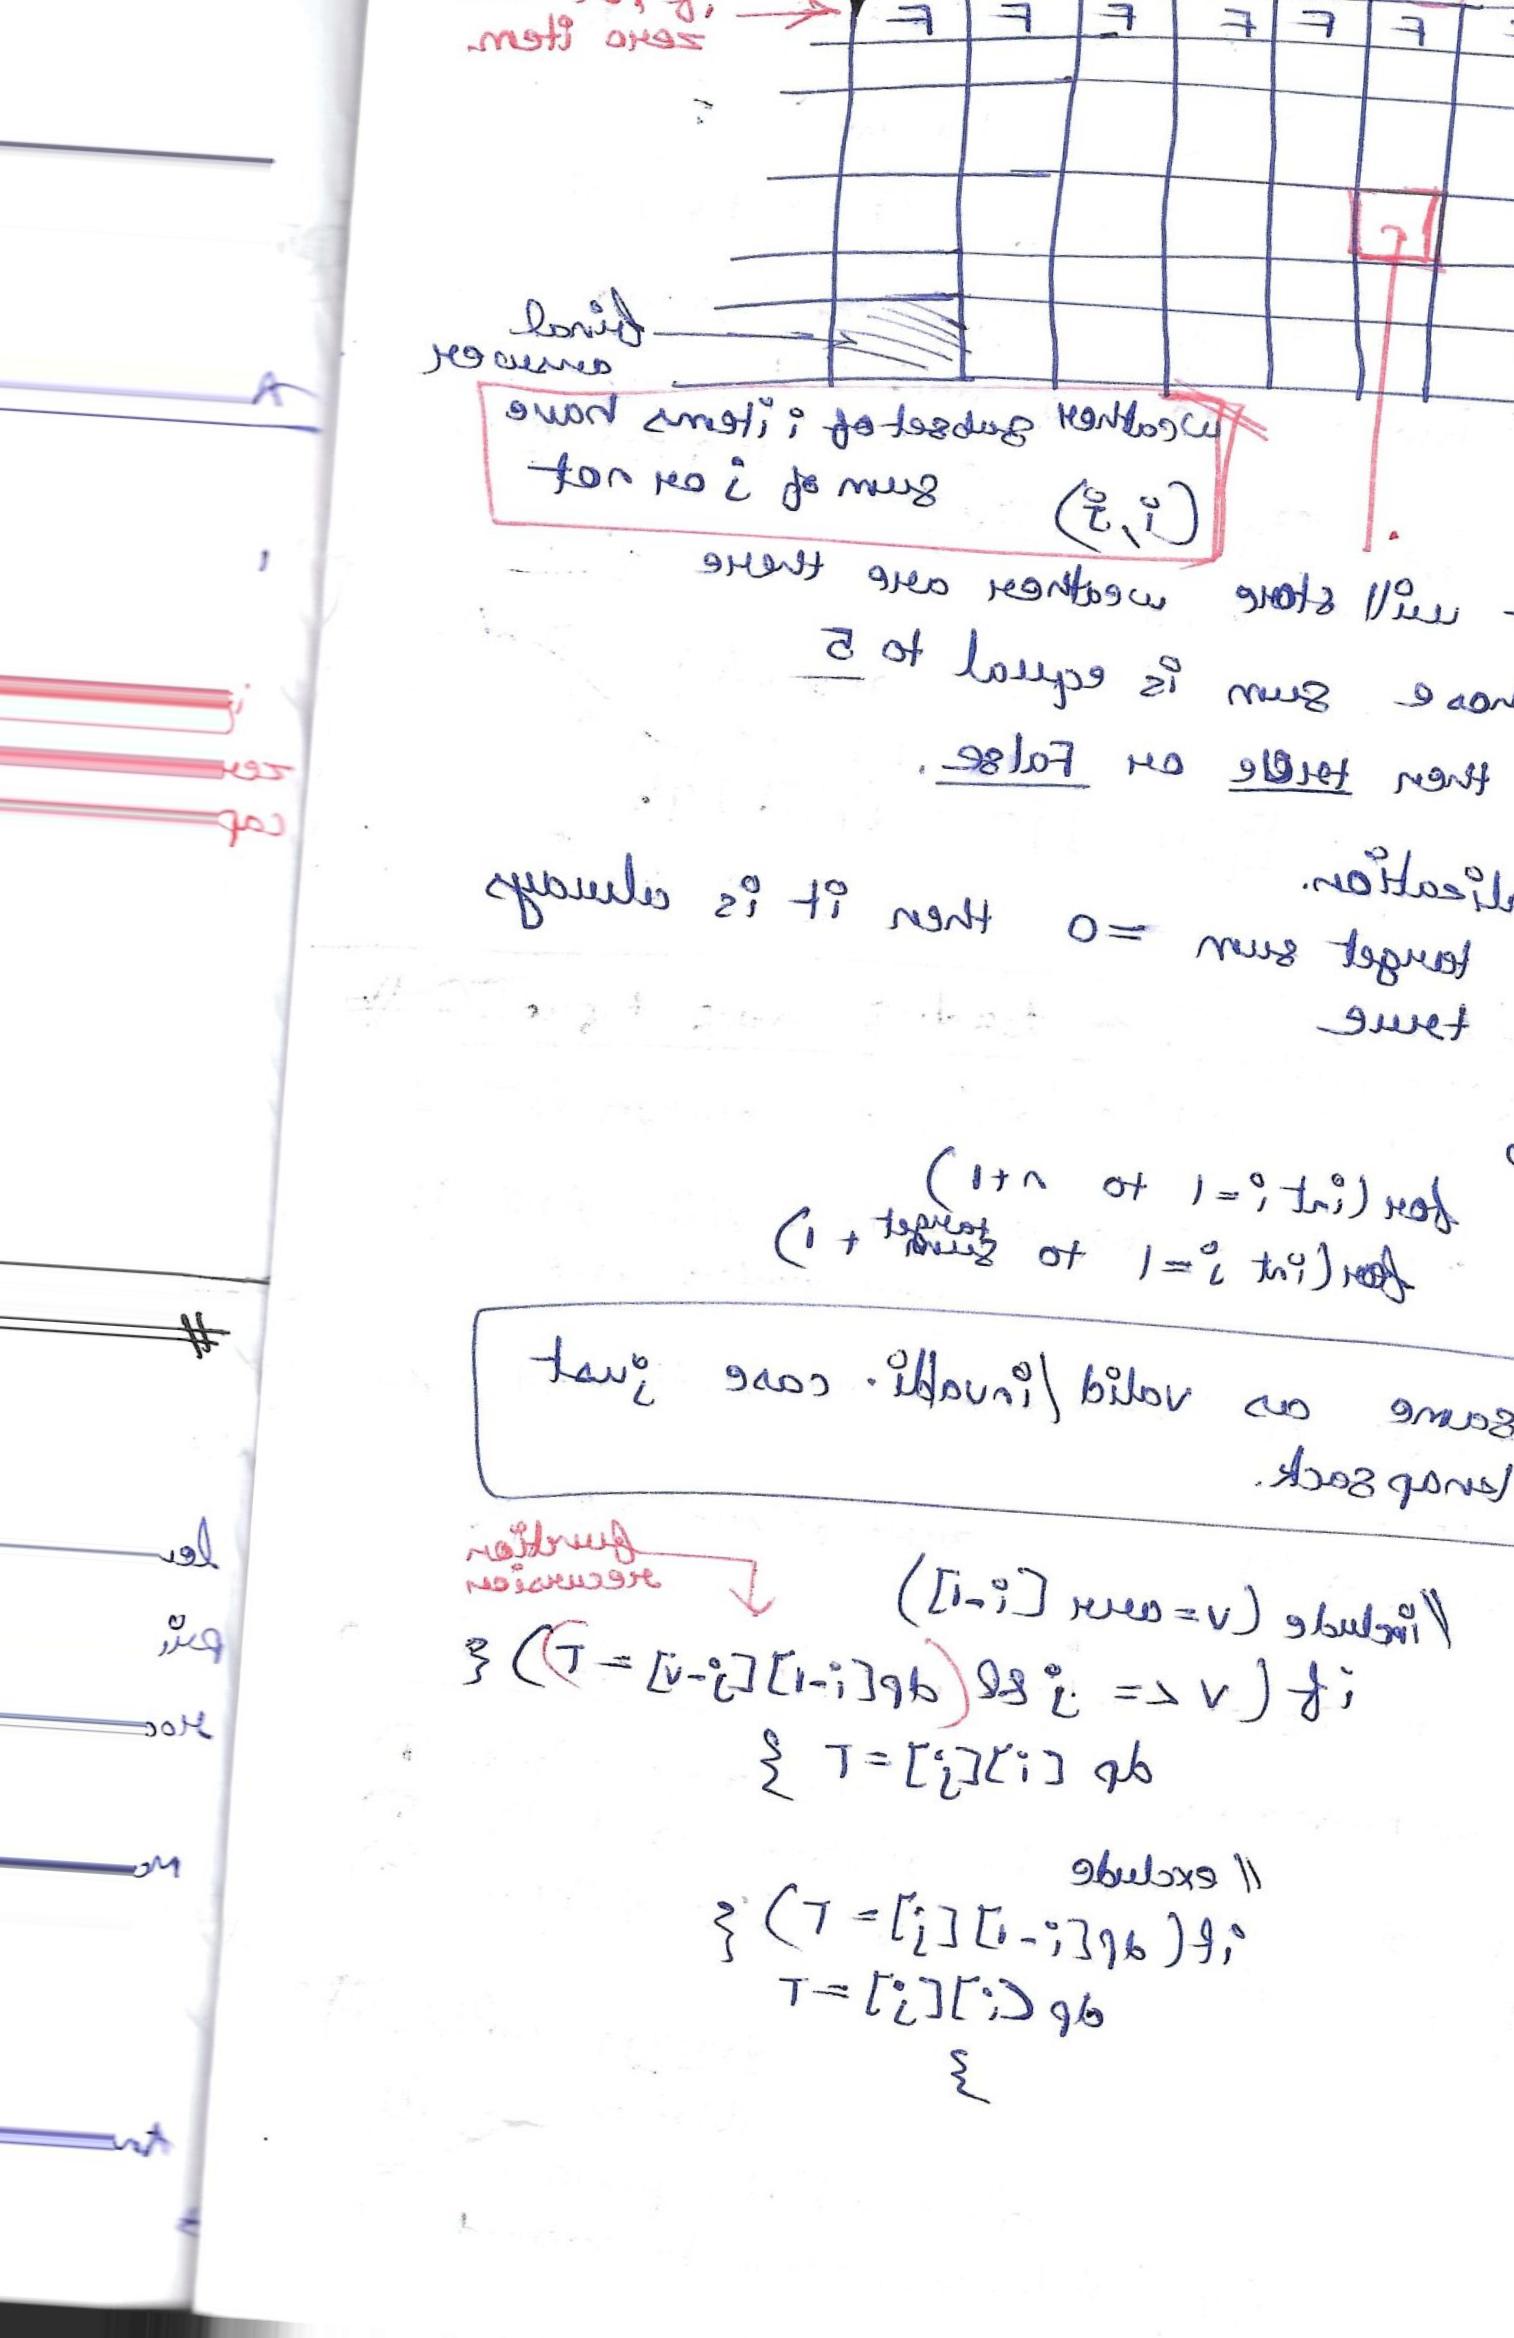 F F F F F F
zero item.
final
answer
weather subset of i items have
(i, j) sum of j or not
- will store weather are there
sum is equal to 5
then true or False.
target sum =0 then it is always
true
for(int i=1 to n+1)
for(int j=1 to target sum + 1)
same as valid/invalid. case just
knapsack.
function
recursion
//include (v=arr[i-1])
if (v <= j && (dp[i-1][j-v] = T)) {
dp [i][j] = T }
// exclude
if( dp[i-1][j] = T) {
dp[i][j] = T
}
A
cap
#